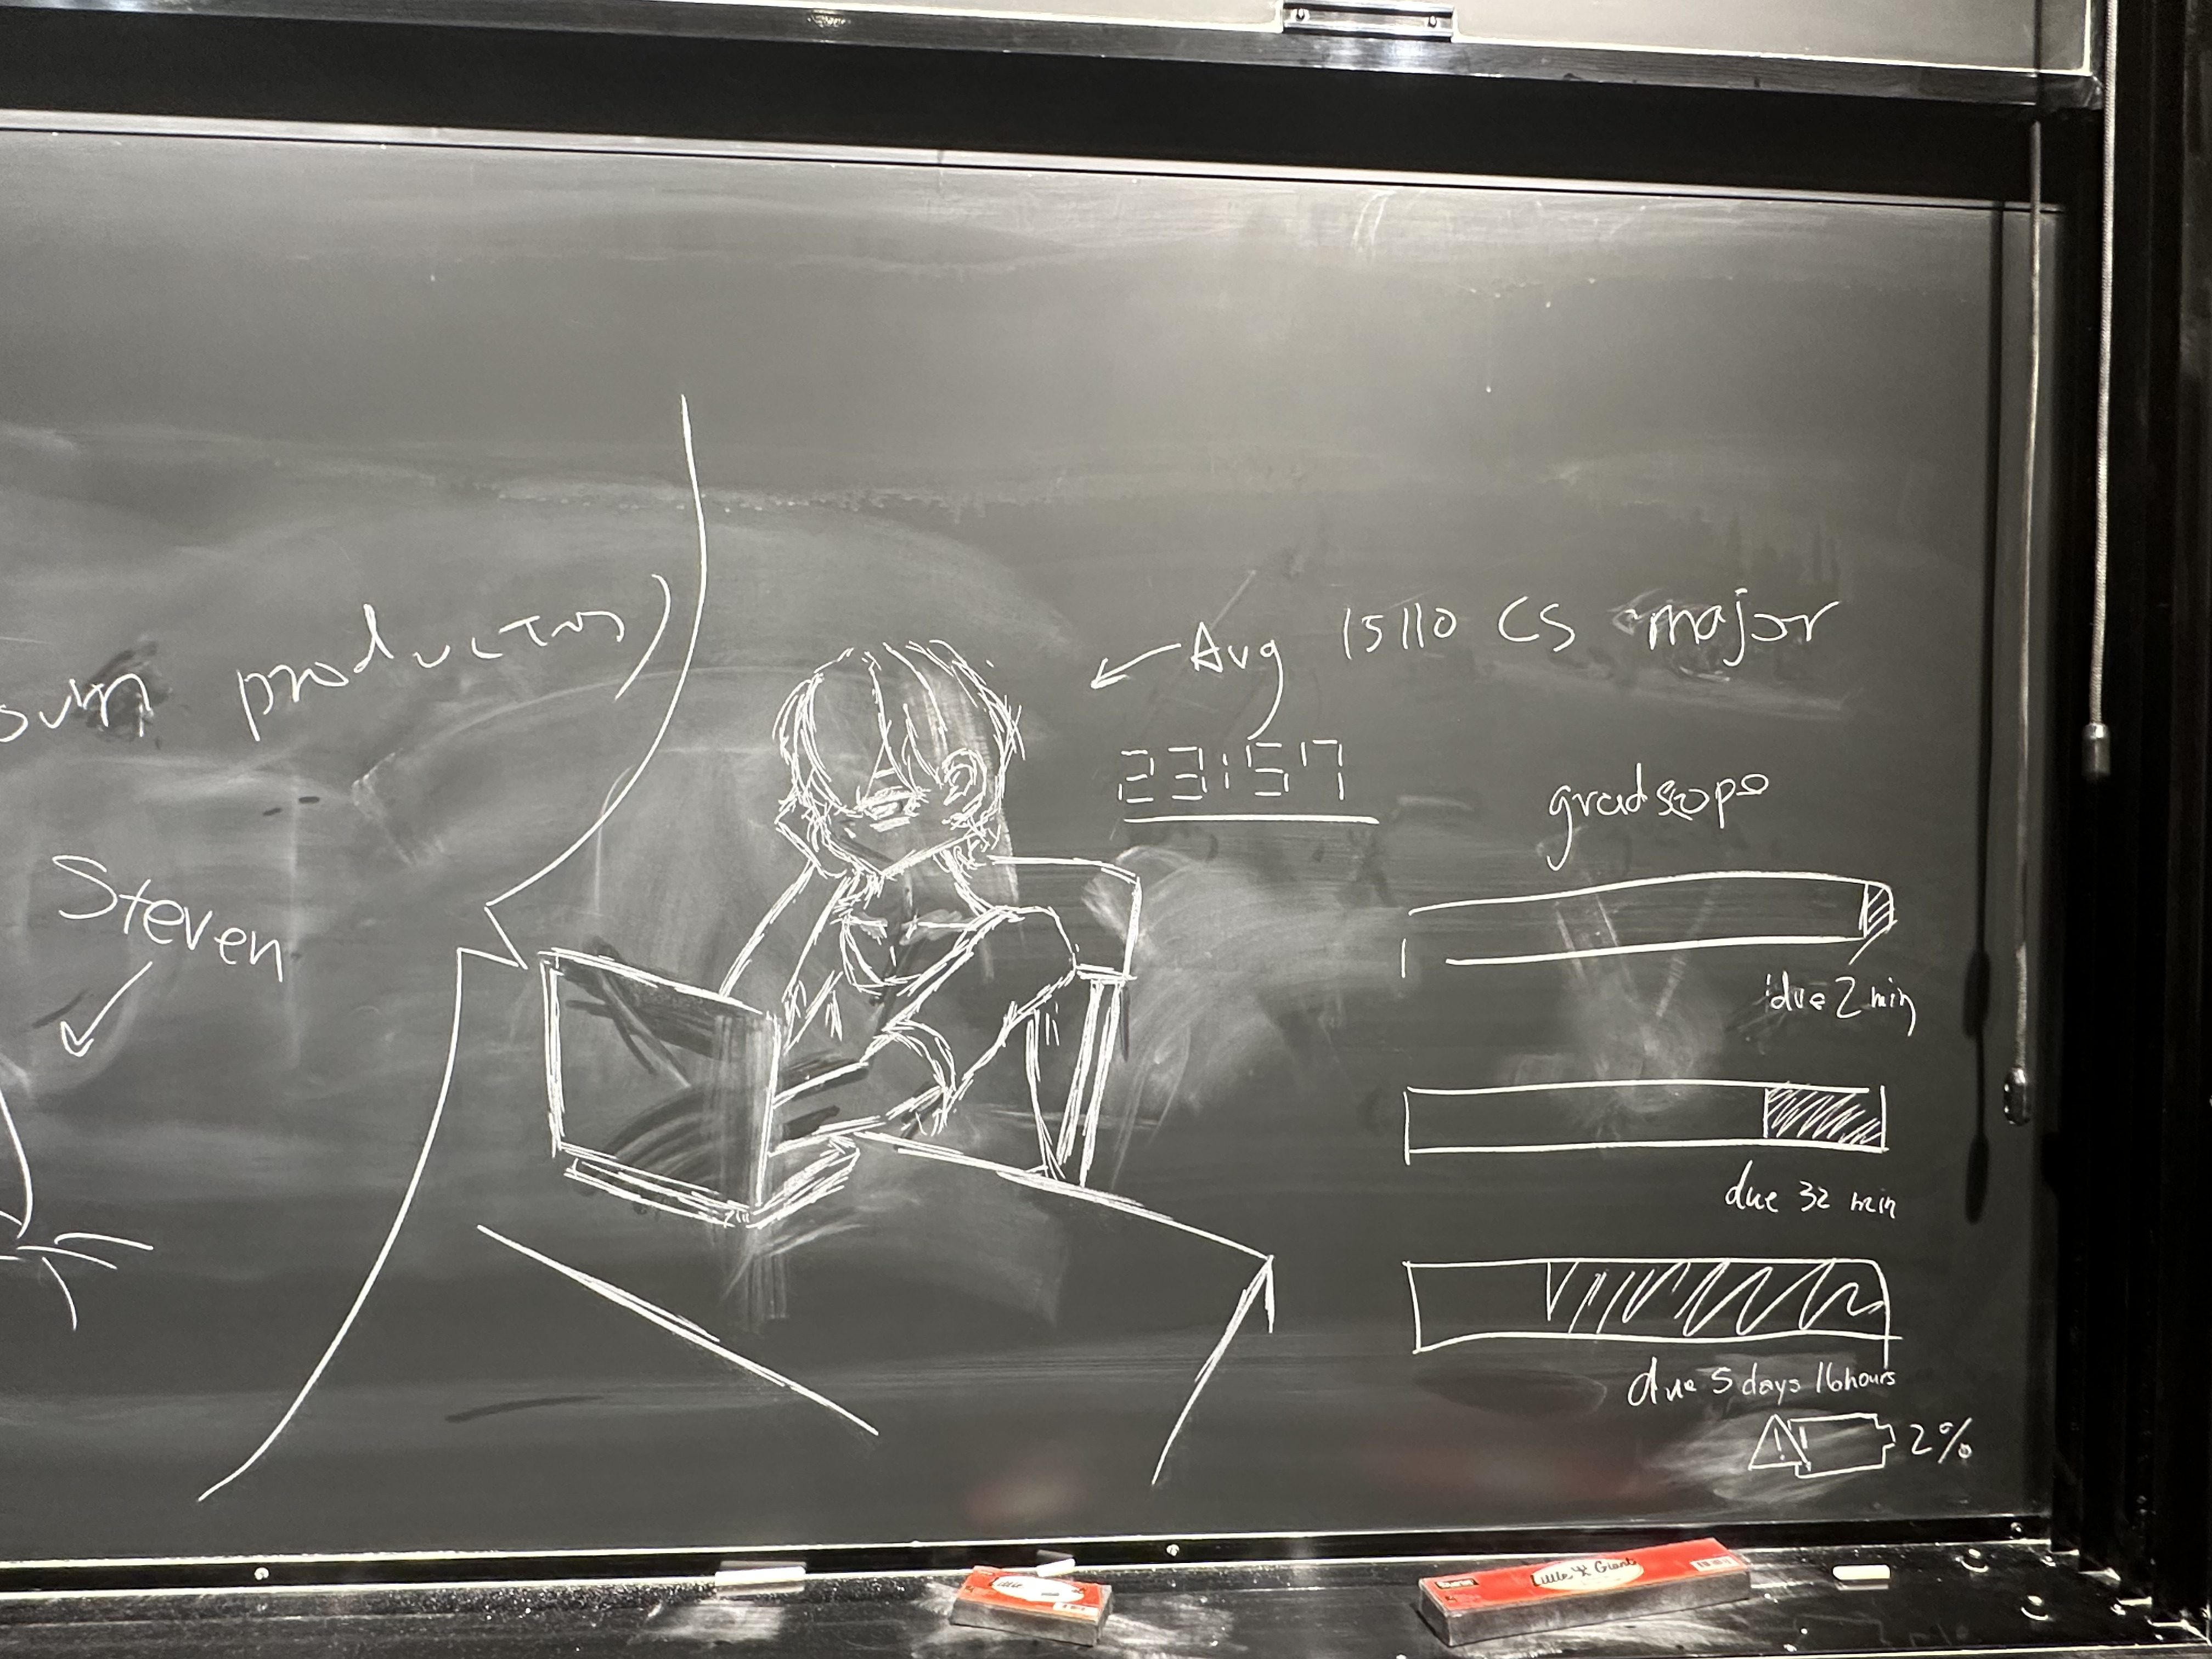 productos)
Steven
Avg 15110 CS major
23:57
gradscope
due 2 min
due 32 min
due 5 days 16 hours
! 2%
Little Giant